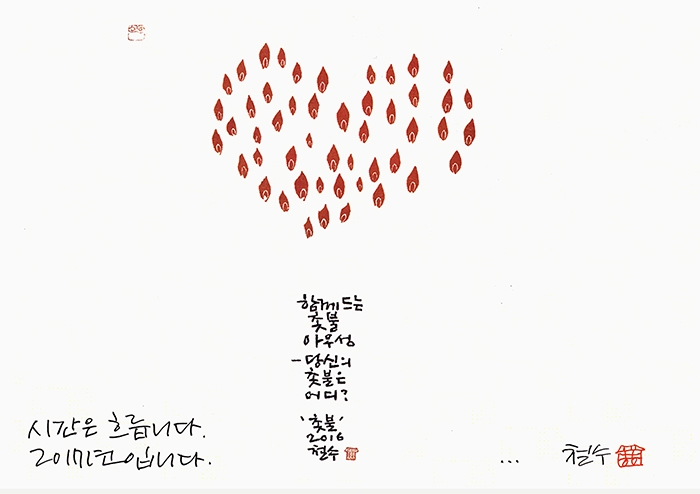 함께 드는
촛불
아우성
- 당신의
촛불은
어디?
'촛불'
2016
철수
시간은 흐릅니다.
2017년입니다.
... 철수